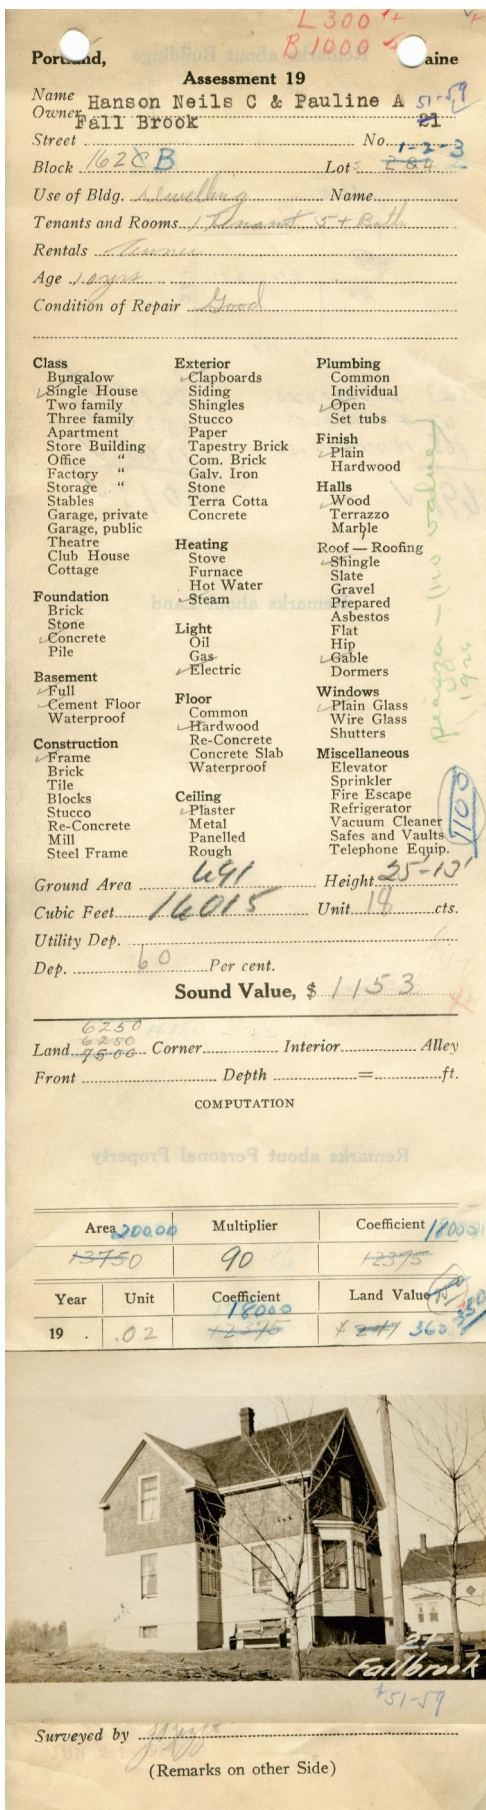 L 300 +
B 1000 +
Portland, Maine
Assessment 19
Name Hanson Neils C & Pauline A 51-59
Owner Fall Brook 21
Street No.
1-2-3
Block 162 C B Lots 2 & 4
Use of Bldg. Dwelling Name
Tenants and Rooms 1 Tenant 5 + Bath
Rentals Owner
Age 10 yrs
Condition of Repair Good
Class
Bungalow
Single House
Two family
Three family
Apartment
Store Building
Office "
Factory "
Storage "
Stables
Garage, private
Garage, public
Theatre
Club House
Cottage
Foundation
Brick
Stone
Concrete
Pile
Basement
Full
Cement Floor
Waterproof
Construction
Frame
Brick
Tile
Blocks
Stucco
Re-Concrete
Mill
Steel Frame
Exterior
Clapboards
Siding
Shingles
Stucco
Paper
Tapestry Brick
Com. Brick
Galv. Iron
Stone
Terra Cotta
Concrete
Heating
Stove
Furnace
Hot Water
Steam
Light
Oil
Gas
Electric
Floor
Common
Hardwood
Re-Concrete
Concrete Slab
Waterproof
Ceiling
Plaster
Metal
Panelled
Rough
Plumbing
Common
Individual
Open
Set tubs
Finish
Plain
Hardwood
Halls
Wood
Terrazzo
Marble
Roof — Roofing
Shingle
Slate
Gravel
Prepared
Asbestos
Flat
Hip
Gable
Dormers
Windows
Plain Glass
Wire Glass
Shutters
Miscellaneous
Elevator
Sprinkler
Fire Escape
Refrigerator
Vacuum Cleaner
Safes and Vaults
Telephone Equip.
piazza - (no value)
1924
1100
Ground Area 691 Height 25'-13'
Cubic Feet 16015 Unit 18 cts.
Utility Dep.
Dep. 60 Per cent.
Sound Value, $ 1153
6250
6250
Land 7500 Corner Interior Alley
Front Depth = ft.
COMPUTATION
Area 20000 Multiplier Coefficient 18000
13750 90 12375
Year Unit Coefficient Land Value
18000
19 . .02 12375 $ 247 360 350
21
Fallbrook
#51-59
Surveyed by
(Remarks on other Side)